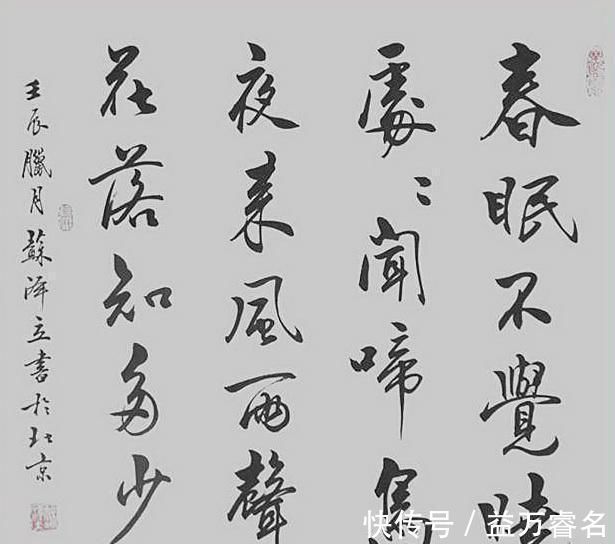 春眠不覺曉
處〻聞啼鳥
夜来風雨聲
花落知多少
壬辰臘月蘇澤立書於北京
快传号 / 益万睿名